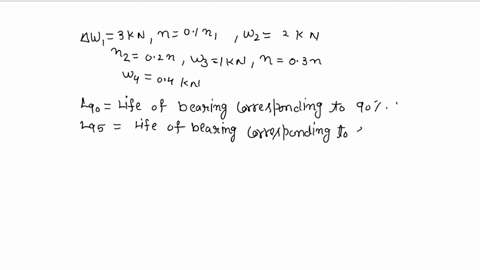 ΔW₁ = 3 KN, n = 0.1 n₁, W₂ = 2 KN
n₂ = 0.2n, W₃ = 1KN, n = 0.3n
W₄ = 0.4 KN
L90 = Life of bearing corresponding to 90%.
L95 = Life of bearing corresponding to